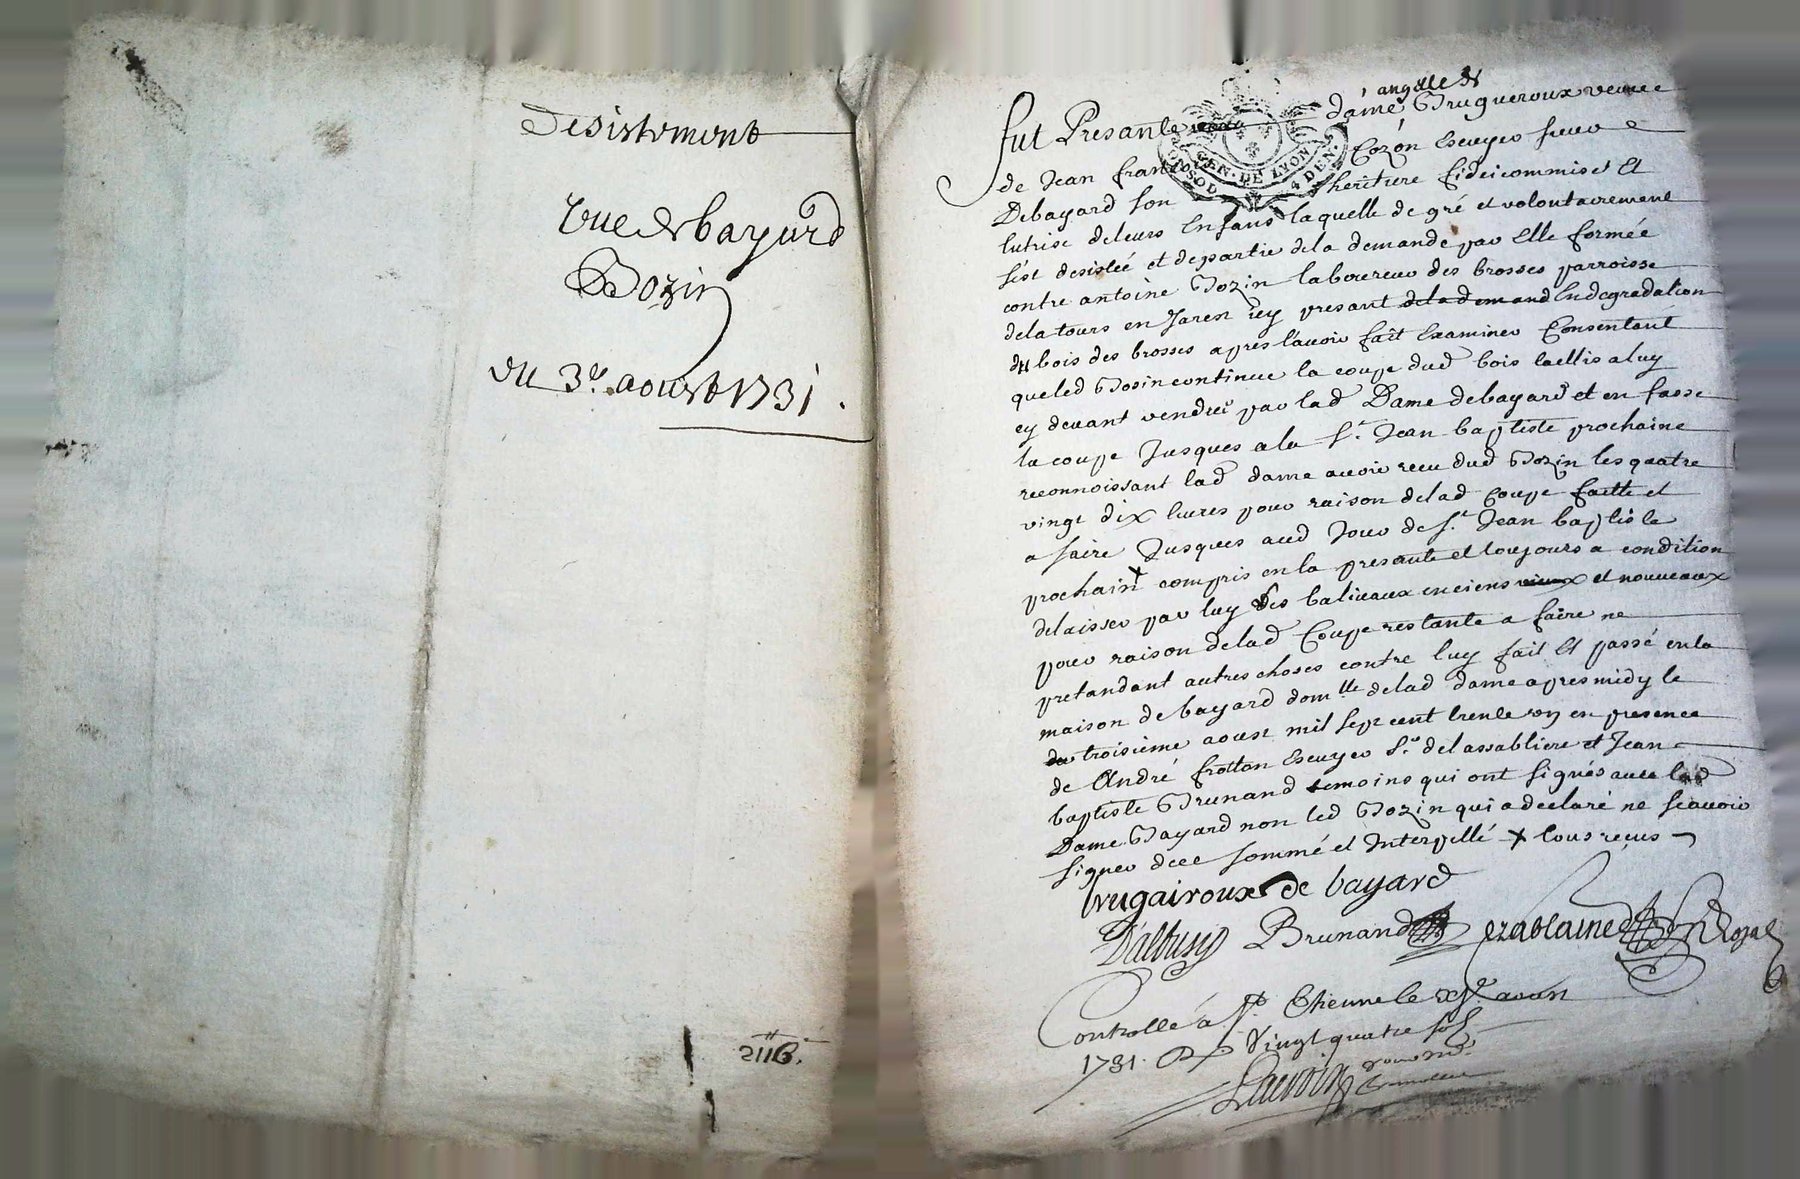 Desistement
vve de bayard
Bozin
du 3e. aoust 1731.
2116.
angelle de
fut Presante dame Brugueroux veuve
de Jean francois Cozon Escuyer sieur
Debayard son heritiere fideicommise Et
lutrise deleurs Enfans laquelle de gré et volontairement
sést desistéé et departie dela demande par Elle formée
contre antoine Bozin laboureur des brosses parroisse
delatours en Jarest icy presant dela demand En degradation
du bois des brosses apres lavoir fait Examiner Consentant
queled Bosin continue la coupe dud bois taellis aluy
cy devant vendu par lad Dame debayard et en fasse
la coupe Jusques a la St. Jean baptiste prochaine
reconnoissant lad dame avoir receu dud Bozin les quatre
vingt dix livres pour raison delad Coupe faitte et
a faire Jusques aud Jour de St. Jean baptiste
prochain x compris en la presante et toujours a condition
delaisser par luy des baliveaux enciens vieux et nouveaux
pour raison delad Coupe restante a faire ne
pretandant autres choses contre luy fait Et passé en la
maison de bayard domlle delad dame apres midy le
troisieme aoust mil sept cent trente un en presence
de André frotton Escuyer Sr. delassabliere et Jean
baptiste Brunand temoins qui ont signés avec lad
Dame Bayard non led Bozin qui a declaré ne scavoir
signer de ce sommé et Interpellé x tous reçus
brugairoux de bayard
Dalbusy Brunand ezablaine Rozal
Controllé á St. Etienne le aoust
1731. R Vingt quatre sols
GEN. DE LYON
4 DEN.